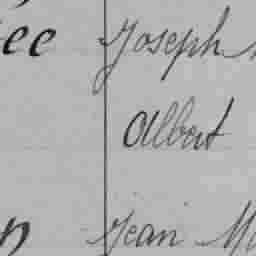 ée Joseph
Albert
n Jean M